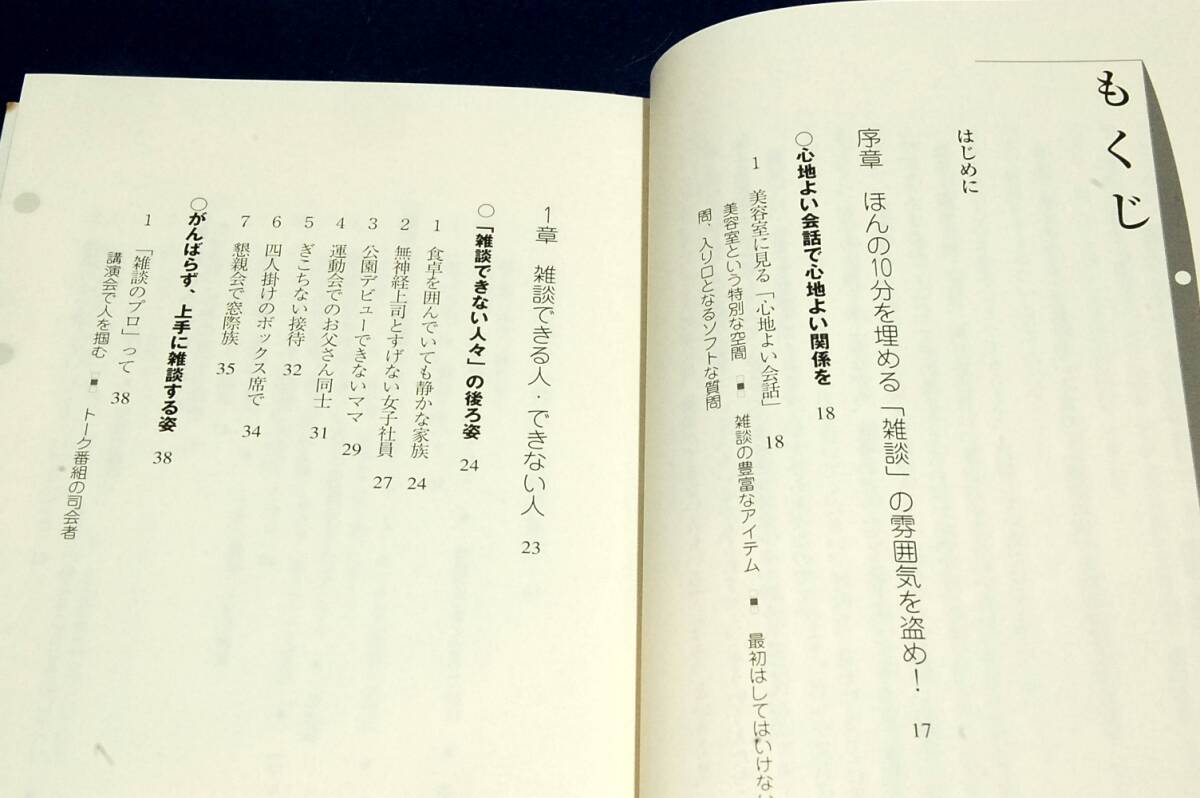 もくじ
はじめに
序章 ほんの10分を埋める「雑談」の雰囲気を盗め! 17
○心地よい会話で心地よい関係を 18
1 美容室に見る「心地よい会話」 18
美容室という特別な空間 ■ 雑談の豊富なアイテム ■ 最初はしてはいけない
問、入り口となるソフトな質問
1章 雑談できる人・できない人 23
○「雑談できない人々」の後ろ姿 24
1 食卓を囲んでいても静かな家族 24
2 無神経上司とすげない女子社員 27
3 公園デビューできないママ 29
4 運動会でのお父さん同士 31
5 ぎこちない接待 32
6 四人掛けのボックス席で 34
7 懇親会で窓際族 35
○がんばらず、上手に雑談する姿 38
1 「雑談のプロ」って 38
講演会で人を掴む ■ トーク番組の司会者